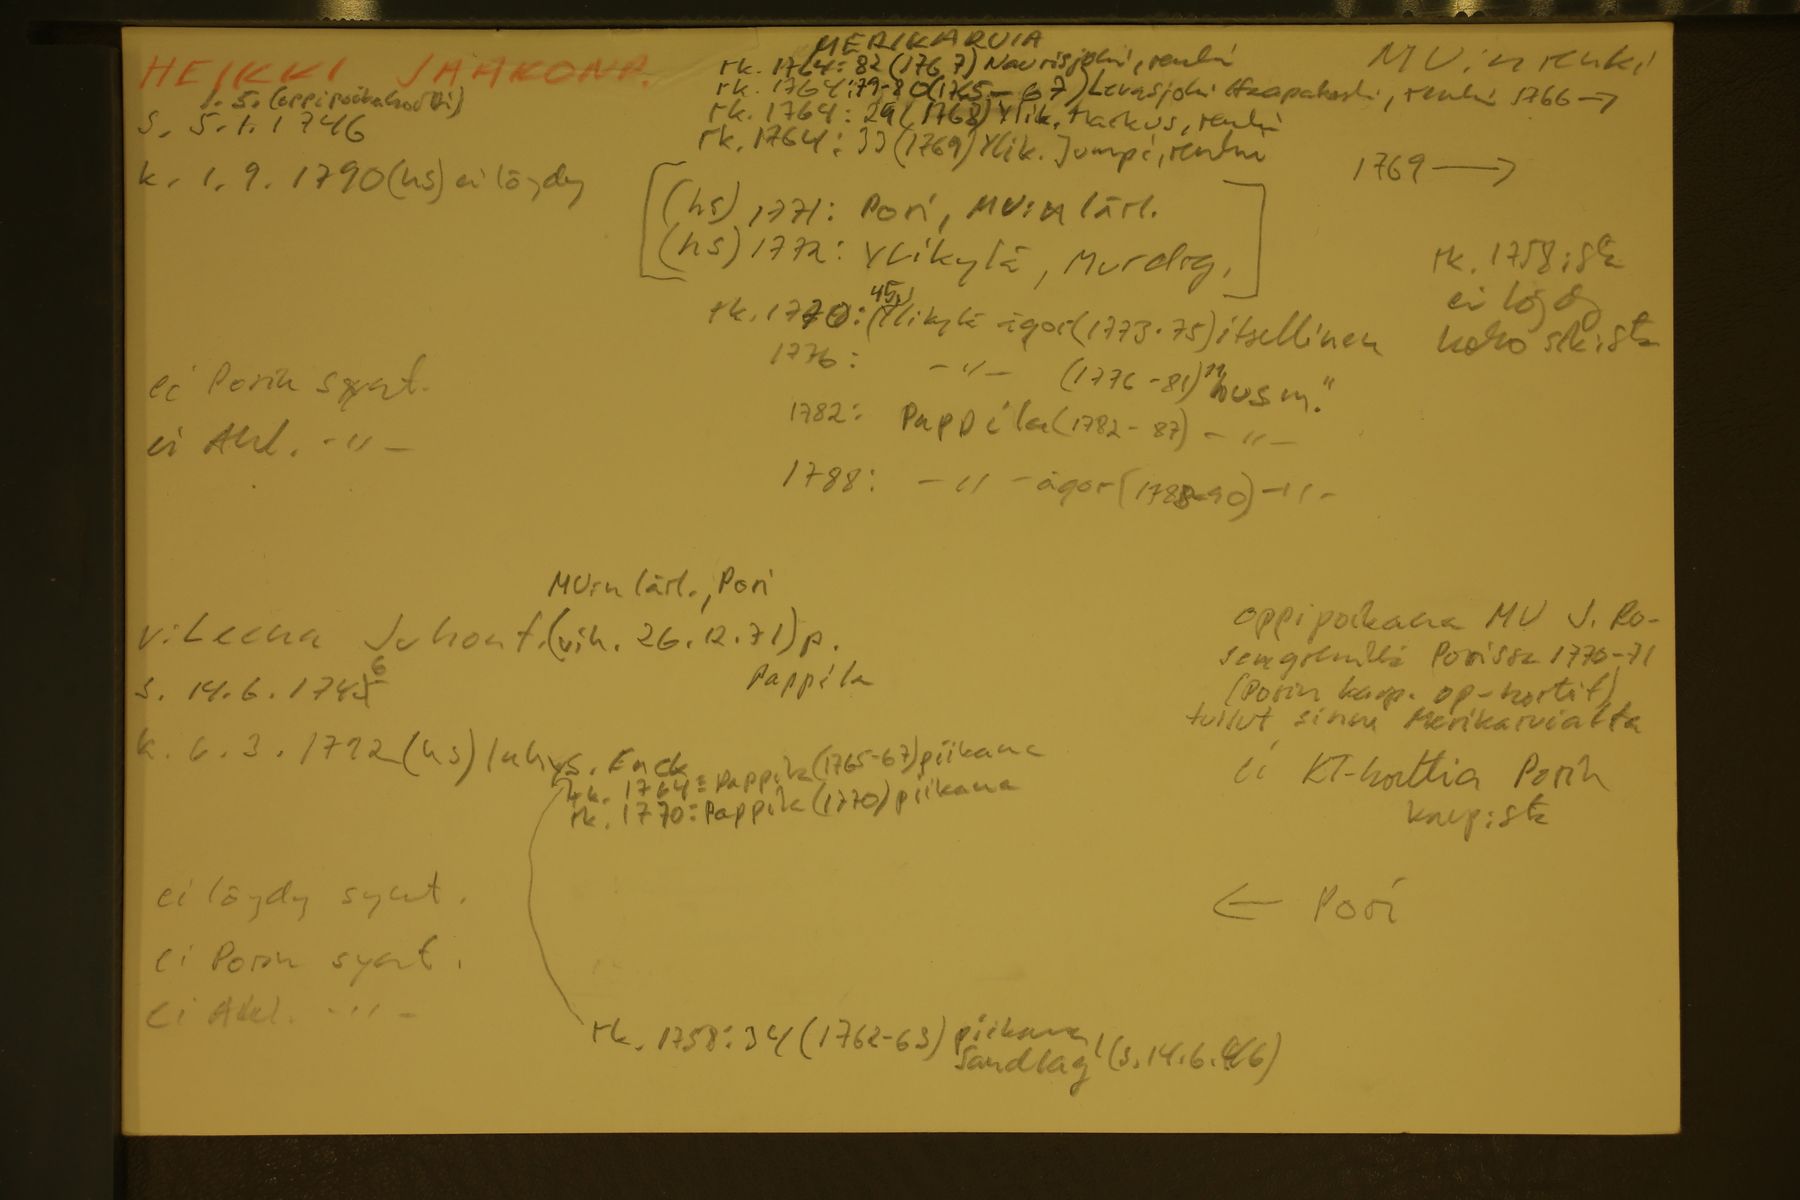 HEIKKI JAAKONP.
1.5. (oppipoikakortti)
s. 5.1.1746
k. 1.9.1790 (hs) ei löydy
MERIKARVIA
rk. 1764: 82 (1767) Naurisjoki, renki
rk. 1764: 79-80 (1765-67) Levasjoki Haapakoski, renki 1766→
rk. 1764: 29 (1768) Ylik. Markus, renki
rk. 1764: 33 (1769) Ylik. Jumpi, renki
MV:n renki
1769 →
[(hs) 1771: Pori, MV:n lärl.
(hs) 1772: Ylikylä, Murdrg.]
rk. 1758:sta
ei löydy
koko srk:sta
45,
rk. 1770: Ylikylä ägor (1773-75) itsellinen
1776: -"- (1776-81) "husm."
1782: Pappila (1782-87) -"-
1788: -"- ägor (1788-90) -"-
ei Porin synt.
ei Ahl. -"-
MV:n lärl., Pori
v: Leena Juhont. (vih. 26.12.71) p.
Pappila
s. 14.6.1745 6
k. 6.3.1792 (hs) Enck
rk. 1764: Pappila (1765-67) piikana
rk. 1770: Pappila (1770) piikana
oppipoikana MV J. Ro-
sengrenillä Porissa 1770-71
(Porin kaup. op-kortit)
tullut sinne Merikarvialta
ei KT-korttia Porin
kaup:sta
ei löydy synt.
ei Porin synt.
ei Ahl. -"-
← Pori
rk. 1758: 34 (1762-63) piikana
Sandlag (s. 14.6.46)